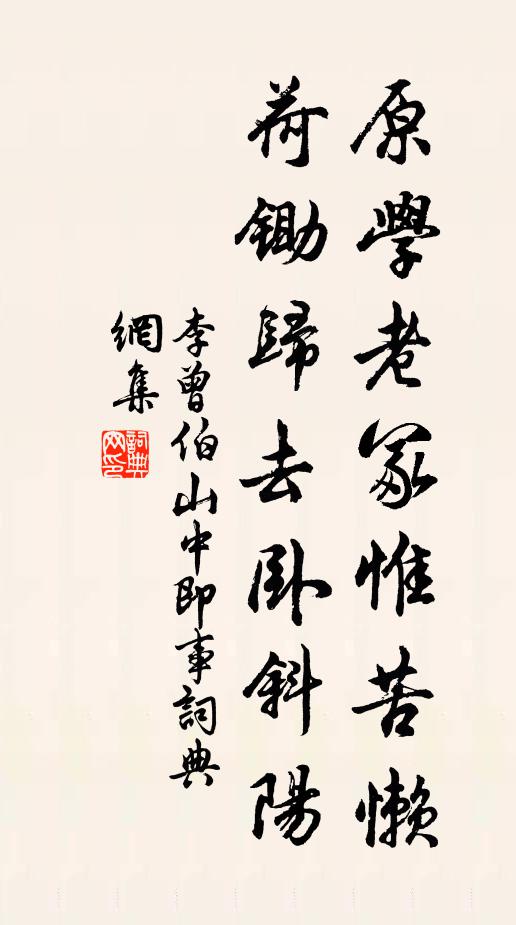 原學老冢惟苦懶
荷鋤歸去臥斜陽
李曾伯山中即事詞典
網集
詞典
网印